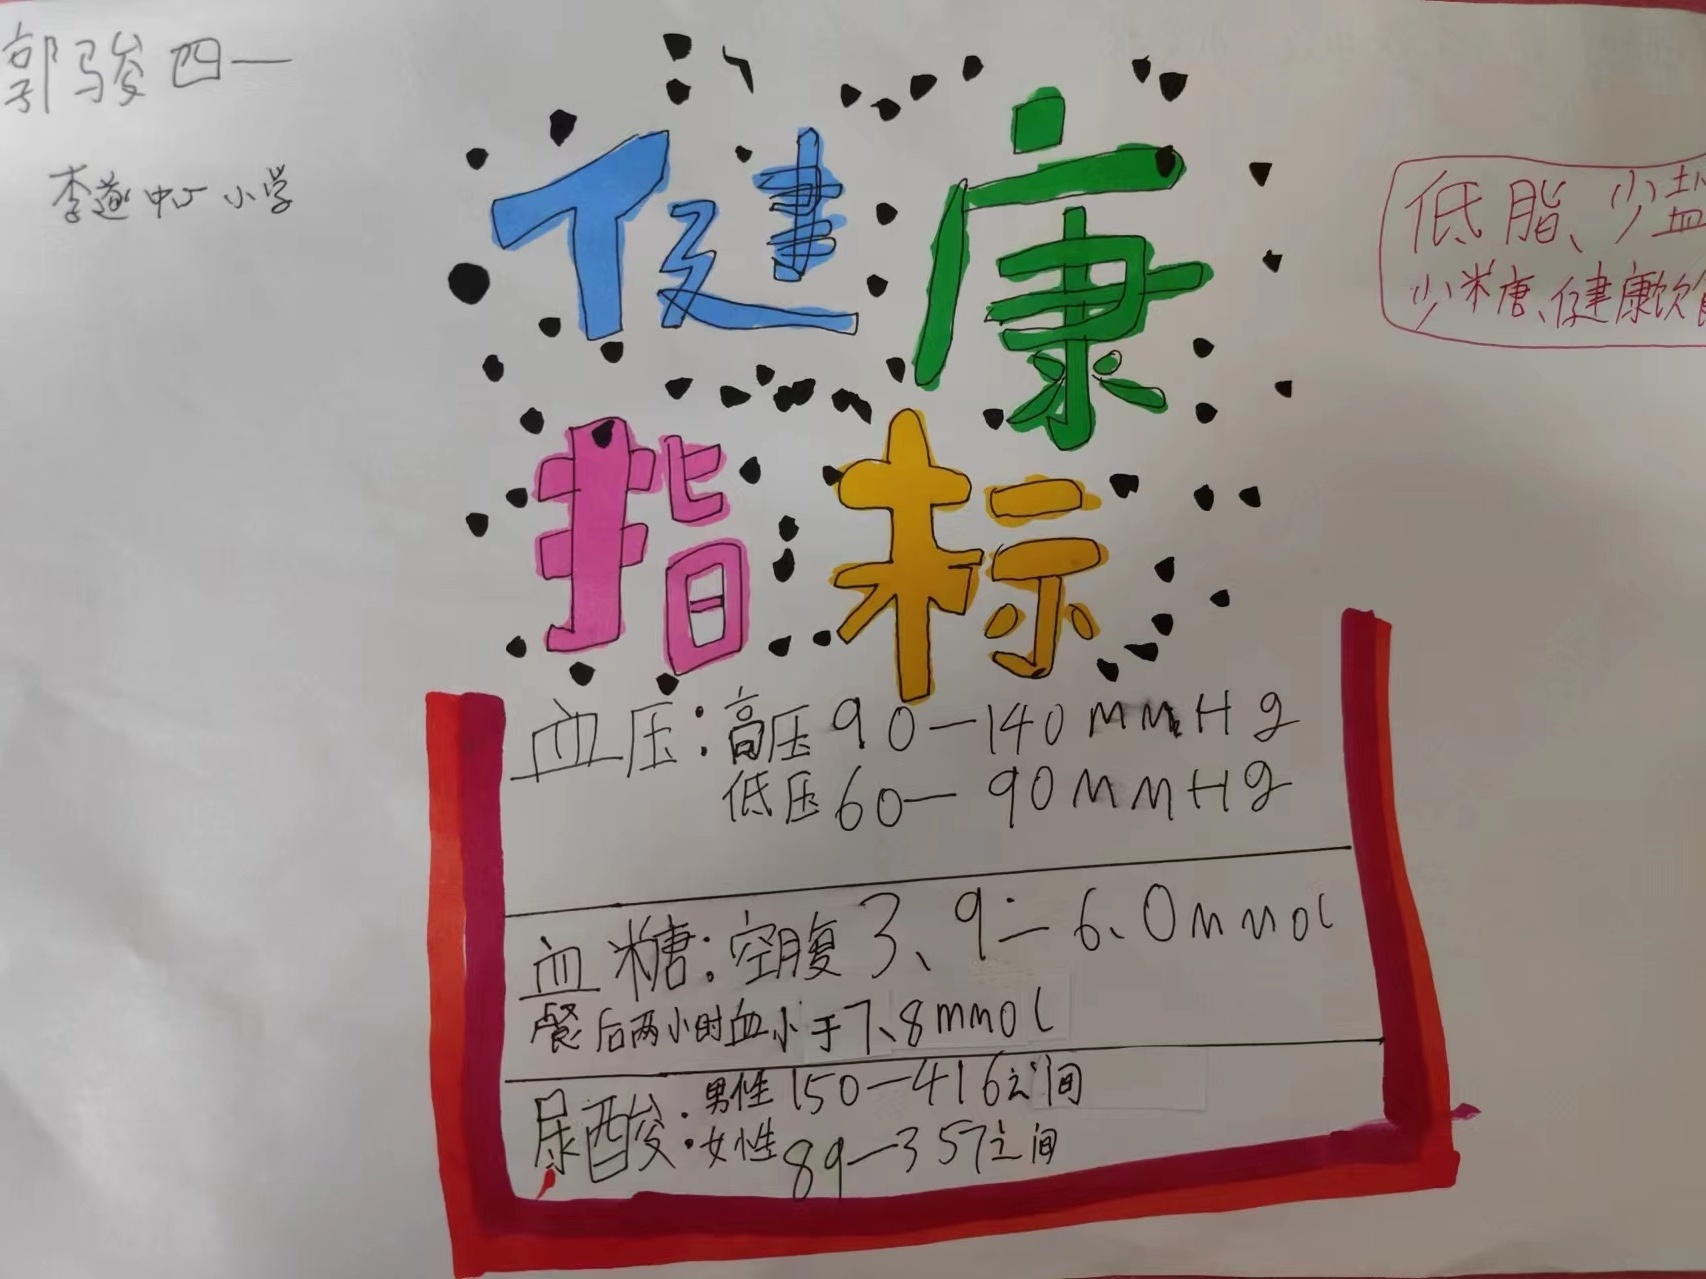 郭骏四一
李道中心小学
健康
指标
低脂、少盐
少糖、健康饮食
血压：高压90—140mmHg
低压60—90mmHg
血糖：空腹3、9—6、0mmol
餐后两小时血小于7、8mmol
尿酸：男性150—416之间
女性89—357之间